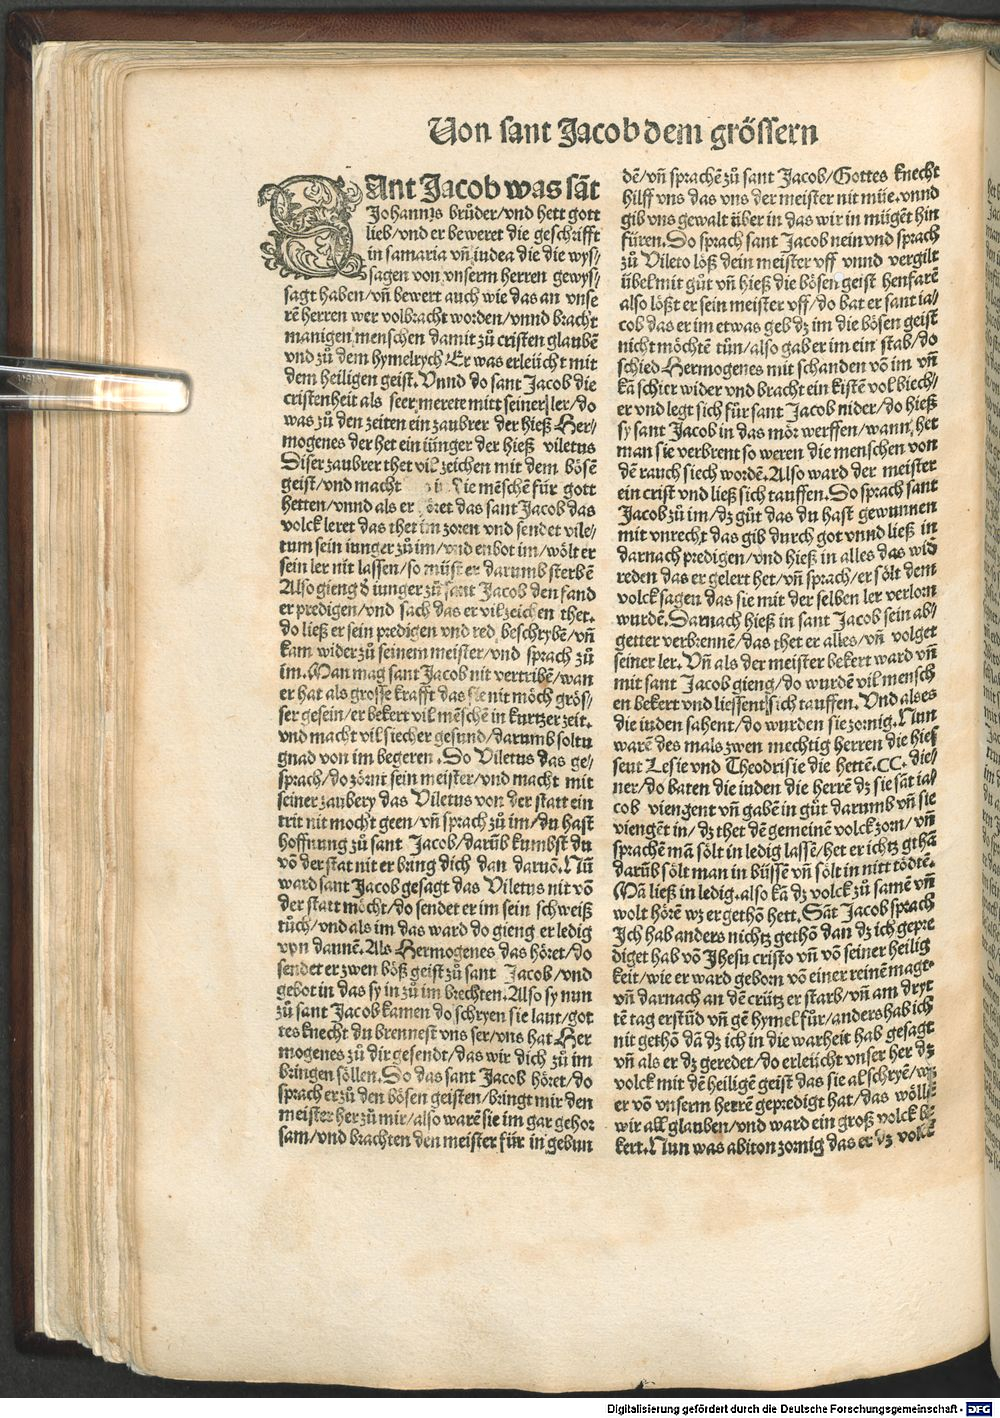 Von sant Jacob dem grössern
SAnt Jacob was sāt
Johannis brüder/vnd hett gott
lieb/vnd er beweret die geschrifft
in samaria vñ iudea die die wys/
sagen von vnserm herren gewys/
sagt haben/vñ bewert auch wie das an vnse
rē herren wer volbracht worden/vnnd bracht
manigen menschen damit zů cristen glaubē
vnd zů dem hymelrych/Er was erleücht mit
dem heiligen geist.Vnnd do sant Jacob die
cristenheit als seer merete mitt seiner ler/do
was zů den zeiten ein zaubrer der hieß Her-
mogenes der het ein iünger der hieß viletus
Diser zaubrer thet vil zeichen mit dem bösē
geist/vnd macht die mēschē für gott
hetten/vnnd als er höret das sant Jacob das
volck leret das thet im zoren vnd sendet vile-
tum sein iunger zů im/vnd enbot im/wölt er
sein ler nit lassen/so müst er darumb sterbē
Also gieng d̄ iunger zů sant Jacob den fand
er predigen/vnd sach das er vil zeichen thet.
do ließ er sein predigen vnd red beschrybē/vñ
kam wider zů seinem meister/vnd sprach zů
im.Man mag sant Jacob nit vertribē/wan
er hat als grosse krafft das sie nit möch grös/
ser gesein/er bekert vil mēschē in kurtzer zeit.
vnd macht vil siecher gesund/darumb soltu
gnad von im begeren.Do Viletus das ge/
sprach/do zörnt sein meister/vnd macht mit
seiner zaubery das Viletus von der statt ein
trit nit mocht geen/vñ sprach zů im/du hast
hoffnung zů sant Jacob/darüb kumbst du
vō der stat nit er bring dich dan daruō.Nū
ward sant Jacob gesagt das Viletus nit vō
der statt möcht/do sendet er im sein schweiß
tůch/vnd als im das ward do gieng er ledig
von dannē.Als Hermogenes das höret/do
sendet er zwen böß geist zů sant Jacob/vnd
gebot in das sy in zů im brechten.Also sy nun
zů sant Jacob kamen do schryen sie laut/got
tes knecht du brennest vns ser/vns hat Her
mogenes zů dir gesendt/das wir dich zů im
bringen söllen.Do das sant Jacob höret/do
sprach er zů den bösen geisten/bringt mir den
meister her zů mir/also warē sie im gar gehor
sam/vnd brachten den meister für in gebun
dē/vñ sprachē zů sant Jacob/Gottes knecht
hilff vns das vns der meister nit müe.vnnd
gib vns gewalt über in das wir in mügēt hin
füren.Do sprach sant Jacob nein vnd sprach
zů Vileto löß dein meister vff vnnd vergilt
übel mit gůt vñ hieß die bösen geist henfarē
also lößt er sein meister vff/do bat er sant ia-
cob das er im etwas geb dz im die bösen geist
nicht möchtē tůn/also gab er im ein stab/do
schied Hermogenes mit schanden vō im vñ
kā schier wider vnd bracht ein kistē vol biech/
er vnd legt sich für sant Jacob nider/do hieß
sy sant Jacob in das mör werffen/wann het
man sie verbrent so weren die menschen von
dē rauch siech wordē.Also ward der meister
ein crist vnd ließ sich tauffen.Do sprach sant
Jacob zů im/dz gůt das du hast gewunnen
mit vnrecht das gib durch got vnnd ließ in
darnach predigen/vnd hieß in alles das wid̄
reden das er gelert het/vñ sprach/er sölt dem
volck sagen das sie mit der selben ler verlorn
wurdē.Darnach hieß in sant Jacob sein ab/
getter verbrennē/das thet er alles/vñ volget
seiner ler.Vñ als der meister bekert ward vñ
mit sant Jacob gieng/do wurdē vil mensch
en bekert vnd liessent sich tauffen.Vnd als es
die iuden sahent/do wurden sie zornig.Nun
warē des mals zwen mechtig herren die hies
sent Lesie vnd Theodrisie die hettē.CC.die-
ner/do baten die iuden die herrē dz sie sāt ia/
cob viengent vñ gabē in gůt darumb vñ sie
viengēt in/dz thet dē gemeinē volck zorn/vñ
sprachē mā sölt in ledig lassē/het er ichtz gthā
darüb sölt man in büssē vñ sölt in nitt tödtē.
Mā ließ in ledig.also kā dz volck zů samē vñ
wolt hörē wz er gethō hett.Sāt Jacob sprach
Ich hab anders nichtz gethō dan dz ich gepre
diget hab vō Jhesu cristo vñ vō seiner heilig
keit/wie er ward geborn vō einer reinē magt.
vñ darnach an dē crütz er starb/vñ am dryt
tē tag erstůd vñ gē hymel für/anders hab ich
nit gethō dā dz ich in die warheit hab gesagt
vñ als er dz geredet/do erleücht vnser her dz
volck mit dē heiligē geist das sie al schryē/wz
er vō vnserm herrē gepredigt hat/das wölle
wir all glauben/vnd ward ein groß volck be
kert.Nun was abiton zornig das er dz volck
Digitalisierung gefördert durch die Deutsche Forschungsgemeinschaft - DFG